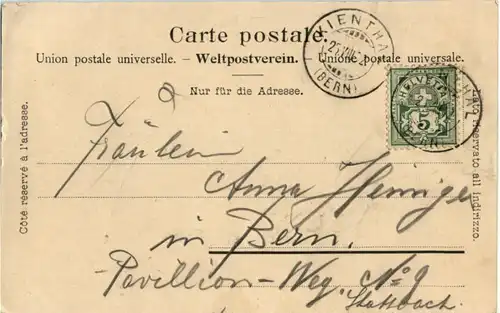 Carte postale.
Union postale universelle. – Weltpostverein. – Unione postale universale.
Nur für die Adresse.
KIENTHAL
(BERN)
5
Côté réservé à l'adresse.
Lato riservato all indirizzo.
Fräulein
Anna
in Bern.
Pavillion-Weg. No 9